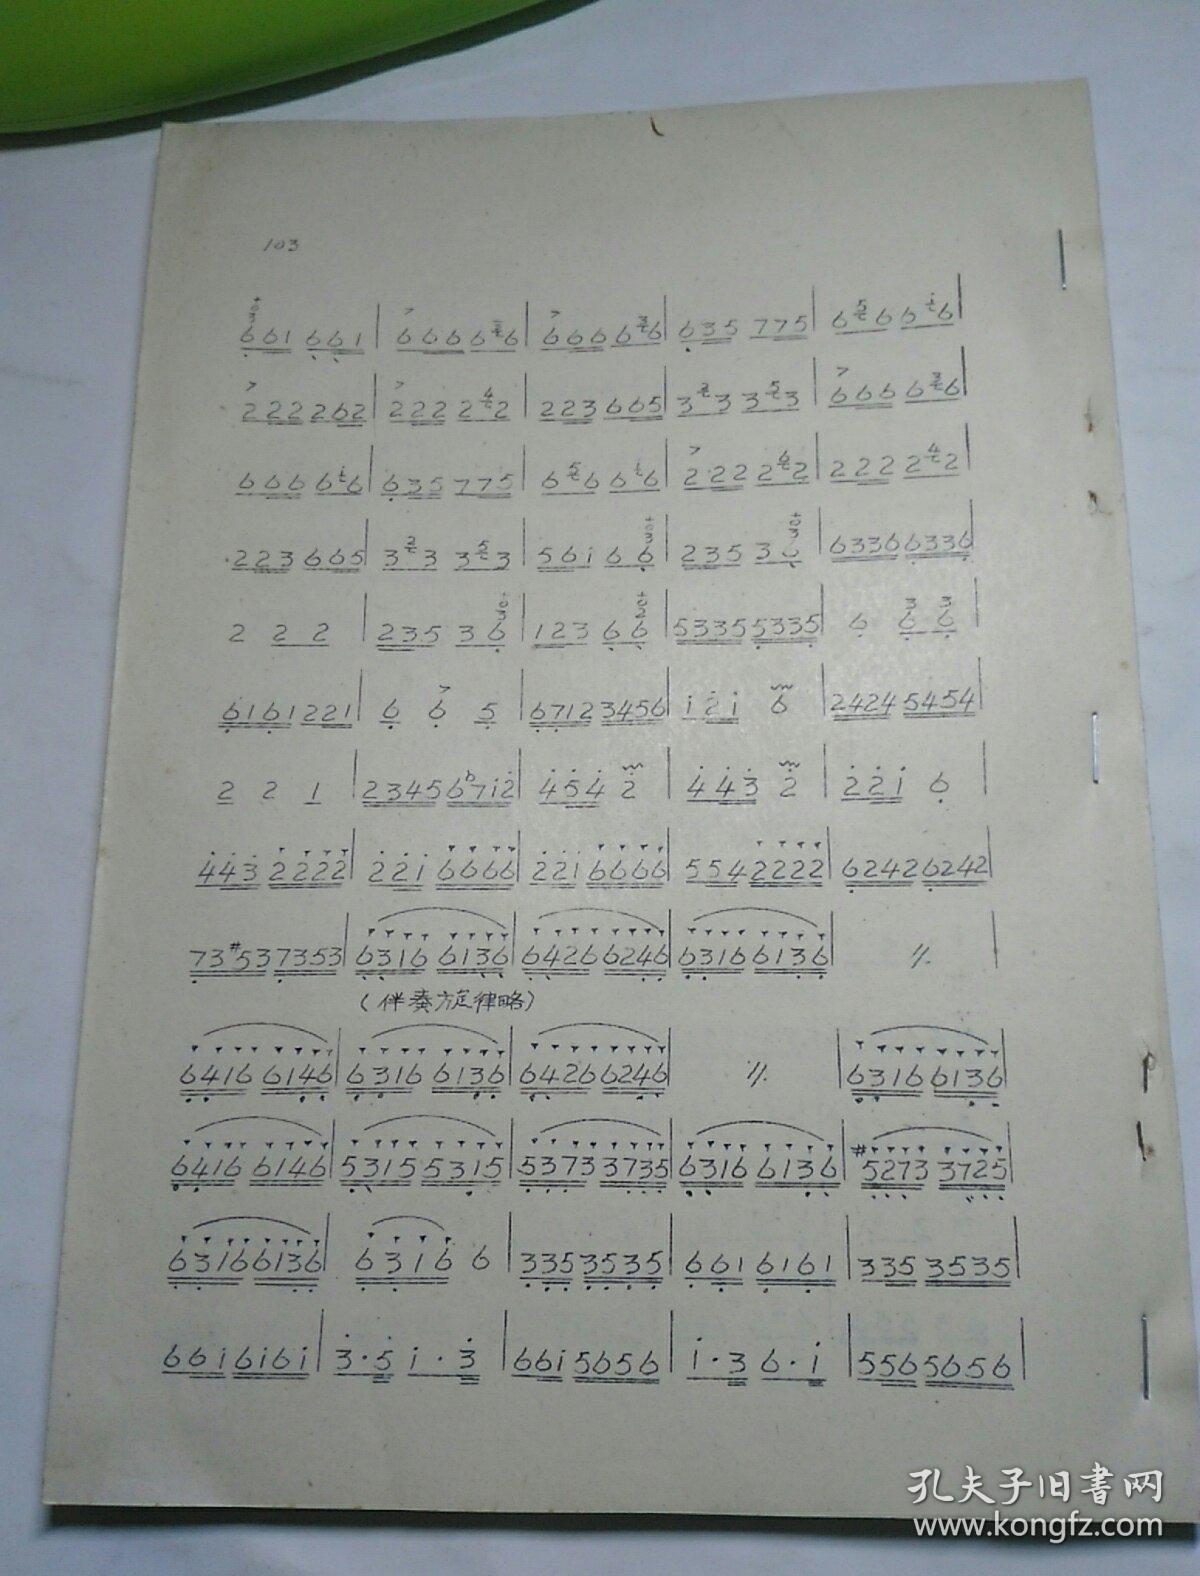 103
661 661 | 666 6 6 | 666 6 6 | 635 775 | 6 6 6 6 |
222 262 | 222 2 2 | 223 665 | 3 3 3 3 | 666 6 6 |
666 6 6 | 635 775 | 6 6 6 6 | 222 2 2 | 222 2 2 |
223 665 | 3 3 3 3 | 56i 6 6 | 235 3 6 | 6336 6336 |
2 2 2 | 235 3 6 | 123 6 6 | 5335 5335 | 6 6 6 |
6161 221 | 6 6 5 | 6712 3456 | i 2 i 6 | 2424 5454 |
2 2 1 | 2345 6♭7i2 | 454 2 | 443 2 | 22i 6 |
443 2222 | 22i 6666 | 22i 6666 | 554 2222 | 6242 6242 |
73#53 7353 | 6316 6136 | 6426 6246 | 6316 6136 | 〃. |
(伴奏旋律略)
6416 6146 | 6316 6136 | 6426 6246 | 〃. | 6316 6136 |
6416 6146 | 5315 5315 | 5373 3735 | 6316 6136 | #5273 3725 |
6316 6136 | 6316 6 | 335 3535 | 661 6161 | 335 3535 |
66i 6i6i | 3·5 i·3 | 66i 5656 | i·3 6·i | 556 5656 |
孔夫子旧书网
www.kongfz.com